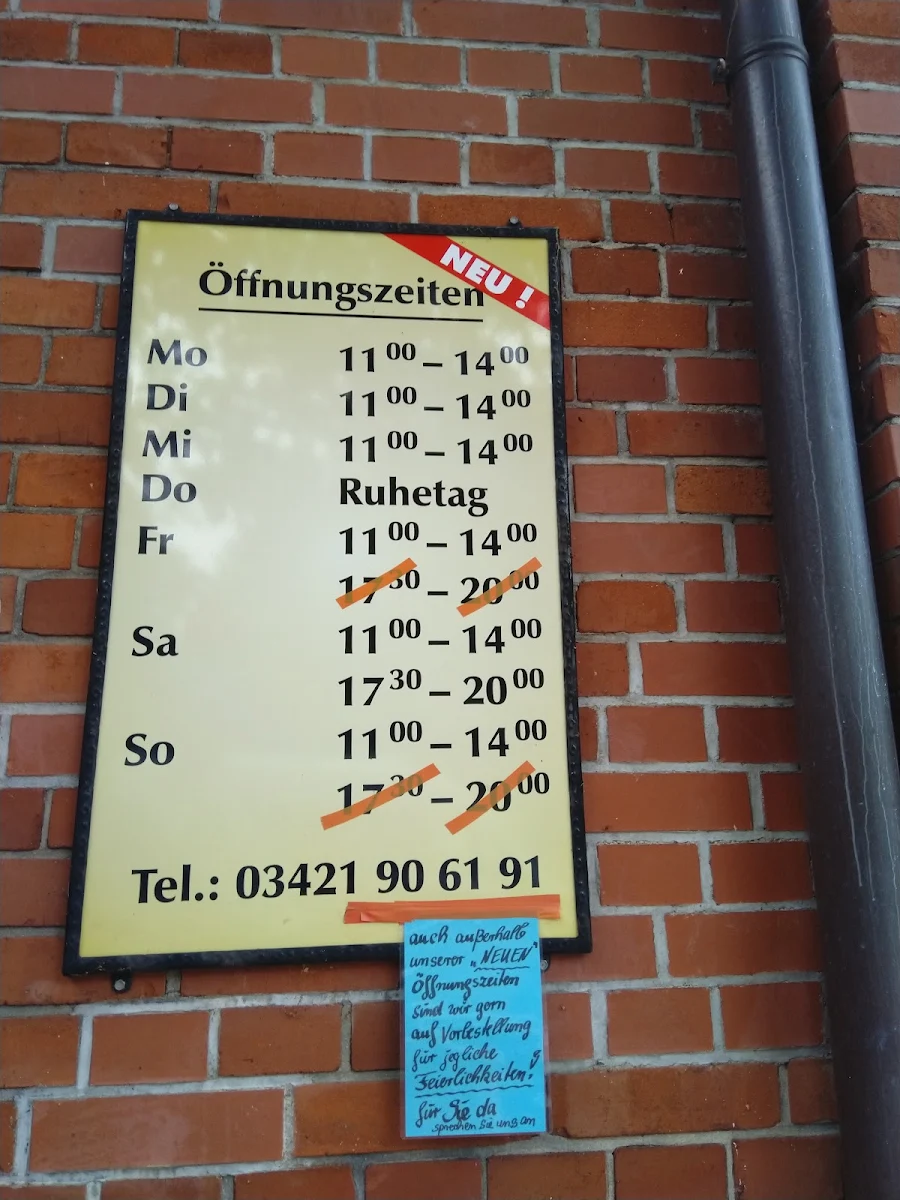 NEU !
Öffnungszeiten
Mo 11⁰⁰ – 14⁰⁰
Di 11⁰⁰ – 14⁰⁰
Mi 11⁰⁰ – 14⁰⁰
Do Ruhetag
Fr 11⁰⁰ – 14⁰⁰
17³⁰ – 20⁰⁰
Sa 11⁰⁰ – 14⁰⁰
17³⁰ – 20⁰⁰
So 11⁰⁰ – 14⁰⁰
17³⁰ – 20⁰⁰
Tel.: 03421 90 61 91
auch außerhalb
unserer „NEUEN"
Öffnungszeiten
sind wir gern
auf Vorbestellung
für jegliche
Feierlichkeiten!
für Sie da
sprechen Sie uns an